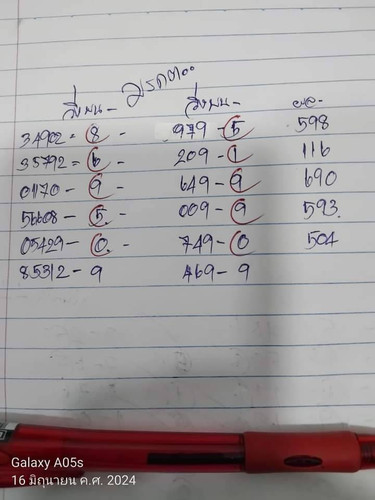 วิ่งบน - วิ่งบน - ผล.
34902 = 8 - 979 - 5 598
35792 = 6 - 209 - 1 116
01170 - 9 649 - 9 690
56608 - 5 - 009 - 9 593.
05429 - 0 - 749 - 0 504
85312 - 9 469 - 9
Galaxy A05s
16 มิถุนายน ค.ศ. 2024